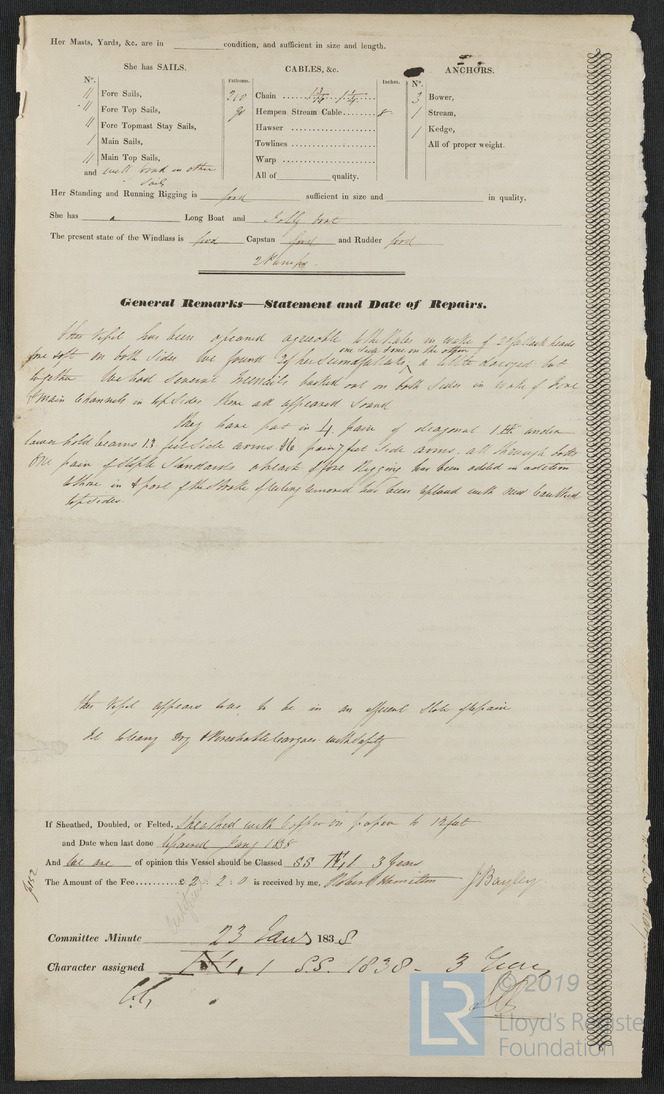 Her Masts, Yards, &c. are in condition, and sufficient in size and length.
She has SAILS.
CABLES, &c.
ANCHORS.
Nº.
Fathoms.
Inches.
Nº.
11 Fore Sails,
11 Fore Top Sails,
11 Fore Topmast Stay Sails,
1 Main Sails,
11 Main Top Sails,
and well found in other
sails
210
90
Chain
Hempen Stream Cable
8
Hawser
Towlines
Warp
All of quality.
3 Bower,
1 Stream,
1 Kedge,
All of proper weight.
Her Standing and Running Rigging is good sufficient in size and in quality.
She has a Long Boat and Jolly boat
The present state of the Windlass is good Capstan good and Rudder good
2 Pumps.
General Remarks—Statement and Date of Repairs.
This Vessel has been opened agreeable to the Rules in wake of
on both sides we found
one side & one on the other
a little decayed but
together We had several treenails backed out on both sides in wake of fore
& main channels in top sides these all appeared sound
They have put in 4 pair of diagonal under
lower hold beams 12 feet side arms & 6 pair 7 feet side arms, all through bolts
One pair of Staple Standards abreast fore rigging has been added in addition
to those in & part of the Stroke of ceiling removed has been replaced with new Caulked
topsides.
This Vessel appears to us to be in an efficient state of repair
to Carry Dry & Perishable Cargoes with Safety
If Sheathed, Doubled, or Felted, Sheathed with Copper on paper to 12 feet
and Date when last done Repaired Jany 1838
And We are of opinion this Vessel should be Classed SS 3 Years
The Amount of the Fee £ 2 : 2 : 0 is received by me, Robert Hamilton J Bayley
Committee Minute 23 Jany 1838
Character assigned 1 SS. 1838 - 3 Years
© 2019
LR
Lloyd's Registe
Foundation